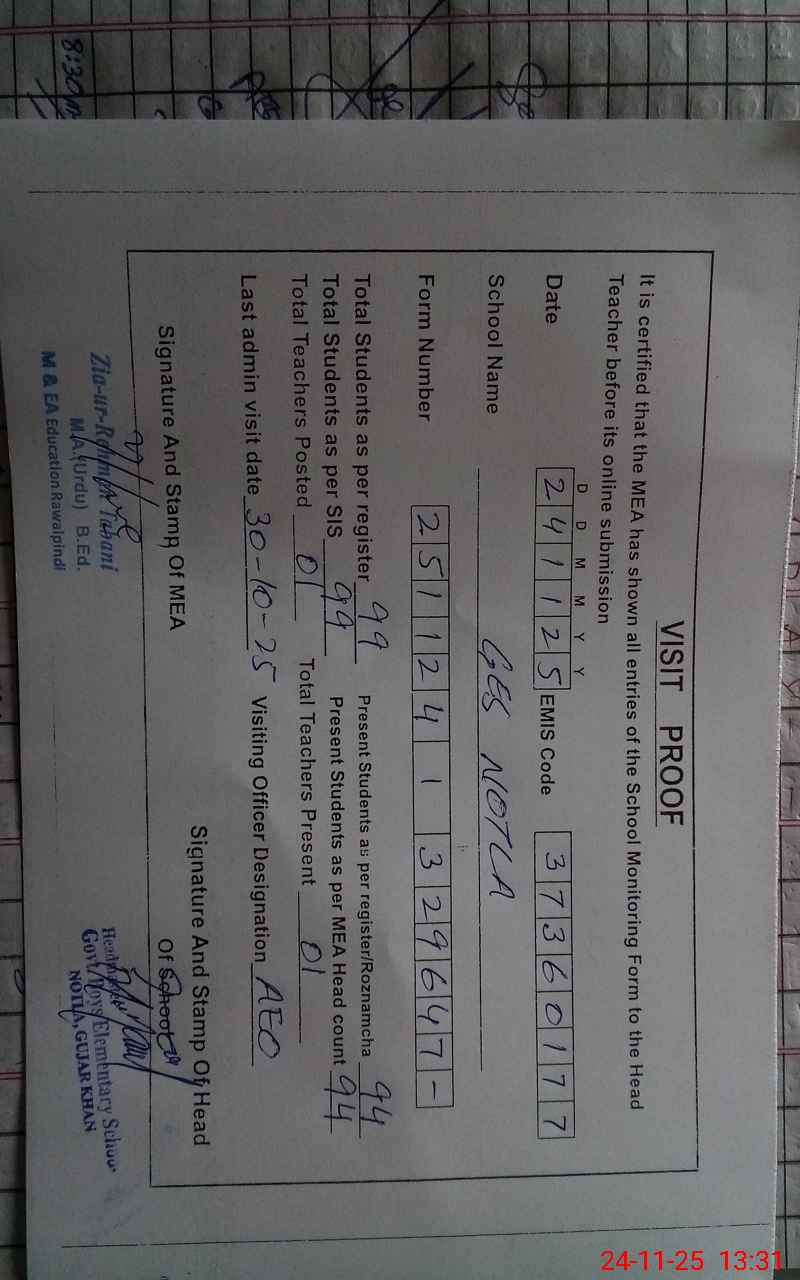 8:30am
VISIT PROOF
It is certified that the MEA has shown all entries of the School Monitoring Form to the Head
Teacher before its online submission
D D M M Y Y
Date 2 4 1 1 2 5 EMIS Code 3 7 3 6 0 1 7 7
School Name GES NOTLA
Form Number 2 5 1 1 2 4 1 3 2 9 6 4 7 -
Total Students as per register 99 Present Students as per register/Roznamcha 94
Total Students as per SIS 99 Present Students as per MEA Head count 94
Total Teachers Posted 01 Total Teachers Present 01
Last admin visit date 30-10-25 Visiting Officer Designation AEO
Signature And Stamp Of MEA
Signature And Stamp Of Head
Of School
Zia-ur-Rehman Tabani
M.A.(Urdu) B.Ed.
M & EA Education Rawalpindi
Headmaster
Govt. Boys Elementary School
NOTLA, GUJAR KHAN
24-11-25 13:31